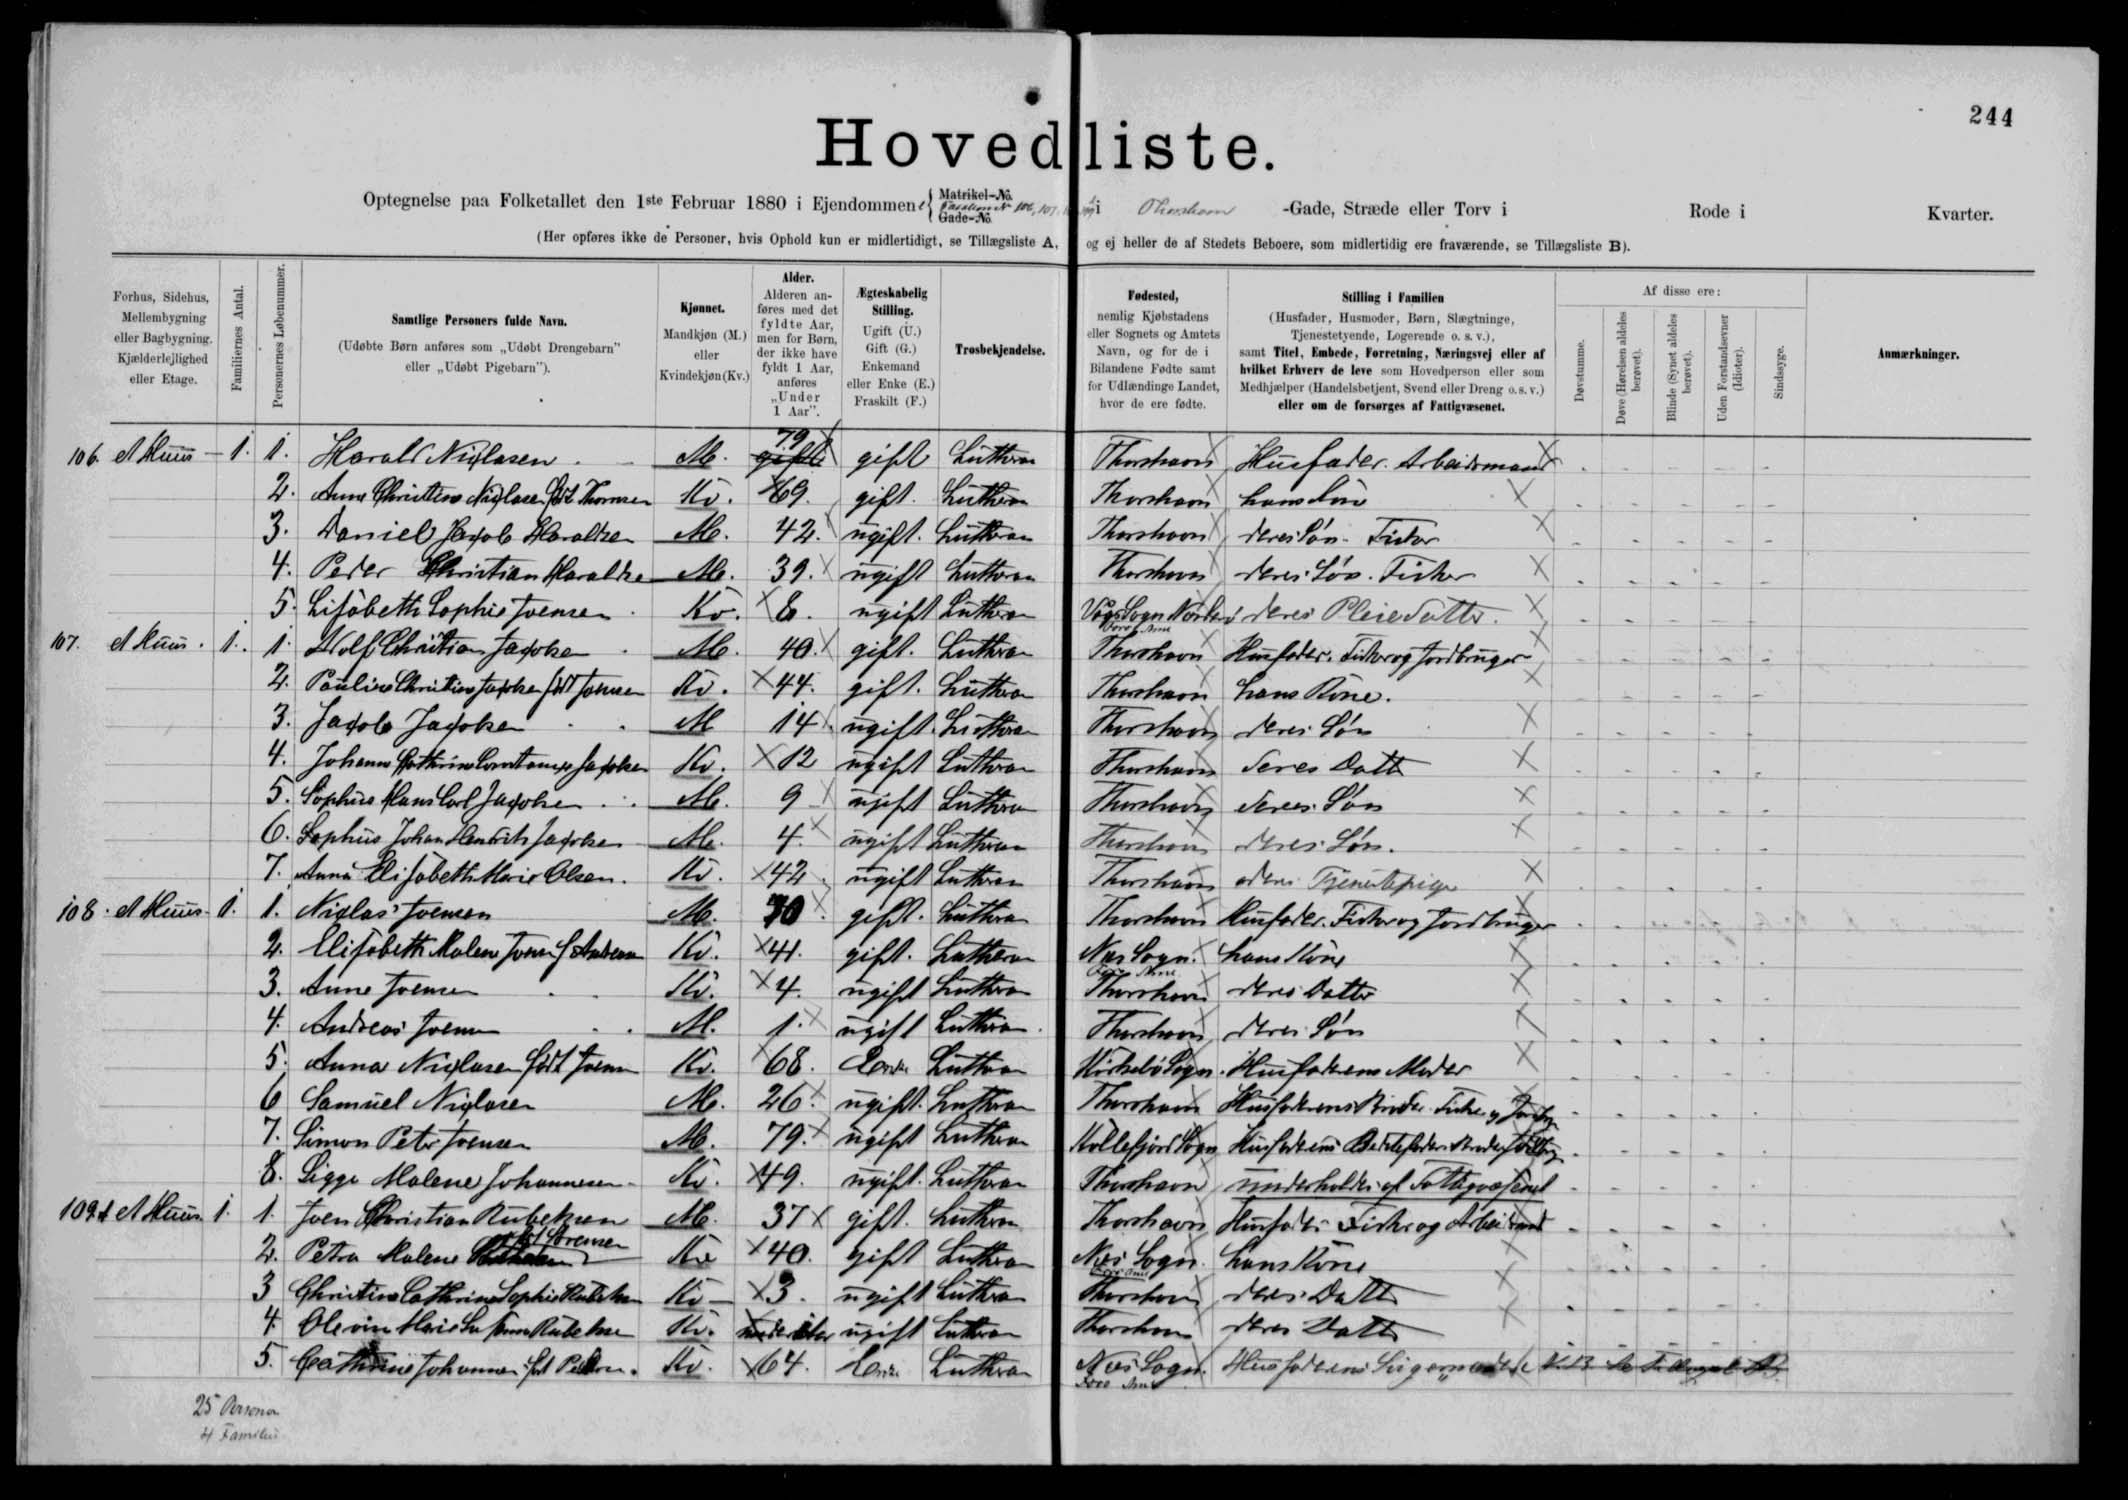 244
Hovedliste.
Optegnelse paa Folketallet den 1ste Februar 1880 i Ejendommene { Matrikel-No. Gade-No. 106, 107, i Thorshavn -Gade, Stræde eller Torv i Rode i Kvarter.
(Her opføres ikke de Personer, hvis Ophold kun er midlertidigt, se Tillægsliste A, og ej heller de af Stedets Beboere, som midlertidig ere fraværende, se Tillægsliste B).
Forhus, Sidehus, Mellembygning eller Bagbygning. Kjælderlejlighed eller Etage.
Familiernes Antal.
Personernes Løbenummer.
Samtlige Personers fulde Navn. (Udøbte Børn anføres som „Udøbt Drengebarn" eller „Udøbt Pigebarn").
Kjønnet. Mandkjøn (M.) eller Kvindekjøn (Kv.)
Alder. Alderen anføres med det fyldte Aar, men for Børn, der ikke have fyldt 1 Aar, anføres „Under 1 Aar".
Ægteskabelig Stilling. Ugift (U.) Gift (G.) Enkemand eller Enke (E.) Fraskilt (F.)
Trosbekjendelse.
Fødested, nemlig Kjøbstadens eller Sognets og Amtets Navn, og for de i Bilandene Fødte samt for Udlændinge Landet, hvor de ere fødte.
Stilling i Familien (Husfader, Husmoder, Børn, Slægtninge, Tjenestetyende, Logerende o. s. v.), samt Titel, Embede, Forretning, Næringsvej eller af hvilket Erhverv de leve som Hovedperson eller som Medhjælper (Handelsbetjent, Svend eller Dreng o. s. v.) eller om de forsørges af Fattigvæsenet.
Af disse ere:
Døvstumme.
Døve (Hørelsen aldeles berøvet).
Blinde (Synet aldeles berøvet).
Uden Forstandsevner (Idioter).
Sindssyge.
Anmærkninger.
106. Et Huus 1. 1. Harald Niclasen M. 79 gift Luthersn Thorshavn Husfader. Arbeidsmand
2. Anne Christine Niclasen født Thomsen Kv. 69. gift. Luthersn Thorshavn hans Kone
3. Daniel Jacob Haraldsen M. 42. ugift. Luthersn Thorshavn deres Søn. Fisker
4. Peder Christian Haraldsen M. 39. ugift Luthersn Thorshavn deres Søn. Fisker
5. Lisabeth Sophie Joensen Kv. 8. ugift Luthersn Vaags Sogn Norderø Færø Amt deres Pleiedatter.
107. Et Huus. 1. 1. Adolf Christian Jacobsen M. 40. gift. Luthersn Thorshavn Husfader. Fisker og Jordbruger
2. Pauline Christine Jacobsen født Joensen Kv. 44. gift. Luthersn Thorshavn hans Kone.
3. Jacob Jacobsen M 14. ugift. Luthersn Thorshavn deres Søn
4. Johanne Cathrine Constance Jacobsen Kv. 12 ugift Luthersn Thorshavn deres Datt
5. Sophus Hans Carl Jacobsen M. 9 ugift Luthersn Thorshavn deres Søn
6. Sophus Johan Hendrik Jacobsen M. 4. ugift Luthersn Thorshavn deres Søn.
7. Anna Elisabeth Marie Olsen. Kv. 42. ugift Luthersn Thorshavn deres Tjenestepige
108. Et Huus. 1. 1. Niclas Joensen M. 70. gift. Luthersn Thorshavn Husfader. Fisker og Jordbruger
2. Elisabeth Malene Joensen f. Andreasen Kv. 41. gift. Luthersn Næs Sogn. Færø Amt hans Kone
3. Anne Joensen Kv. 4. ugift Luthersn Thorshavn deres Datter
4. Andreas Joensen M. 1. ugift Luthersn Thorshavn deres Søn
5. Anna Niclasen født Joensen Kv. 68. Enke Luthersn Kirkebø Sogn. Husfaderens Moder
6 Samuel Niclasen M. 26. ugift. Luthersn Thorshavn Husfaderens Broder. Fisker og
7. Simon Peter Joensen M. 79. ugift Luthersn Kollefjord Sogn Husfaderens Bedstefaders Broder
8. Sigga Malene Johannesen Kv. 49. ugift. Luthersn Thorshavn underholdes af Fattigvæsenet
109 Et Huus. 1. 1. Joen Christian Rubeksen M. 37 gift. Luthersn Thorshavn Husfader Fisker og Arbeidsmand
2. Petra Malene Kv 40. gift Luthersn Næs Sogn. Færø Amt hans Kone
3 Christine Cathrine Sophie Rubeksen Kv 3. ugift Luthersn Thorshavn deres Datt
4. Olevine Marie Rubeksen Kv. under 1 Aar ugift Luthersn Thorshavn deres Datt
5. Cathrine Johannesen født Kv. 64. Enke Luthersn Næs Sogn. Færø Amt Husfaderens Svigermoder
25 Personer
4 Familier